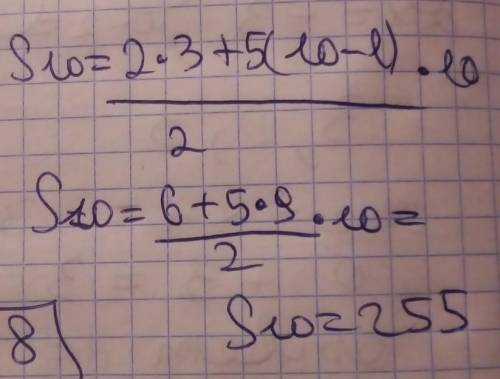 S₁₀ = (2·3+5(10-1))/2 · 10
S₁₀ = (6+5·9)/2 · 10 =
S₁₀ = 255
8)